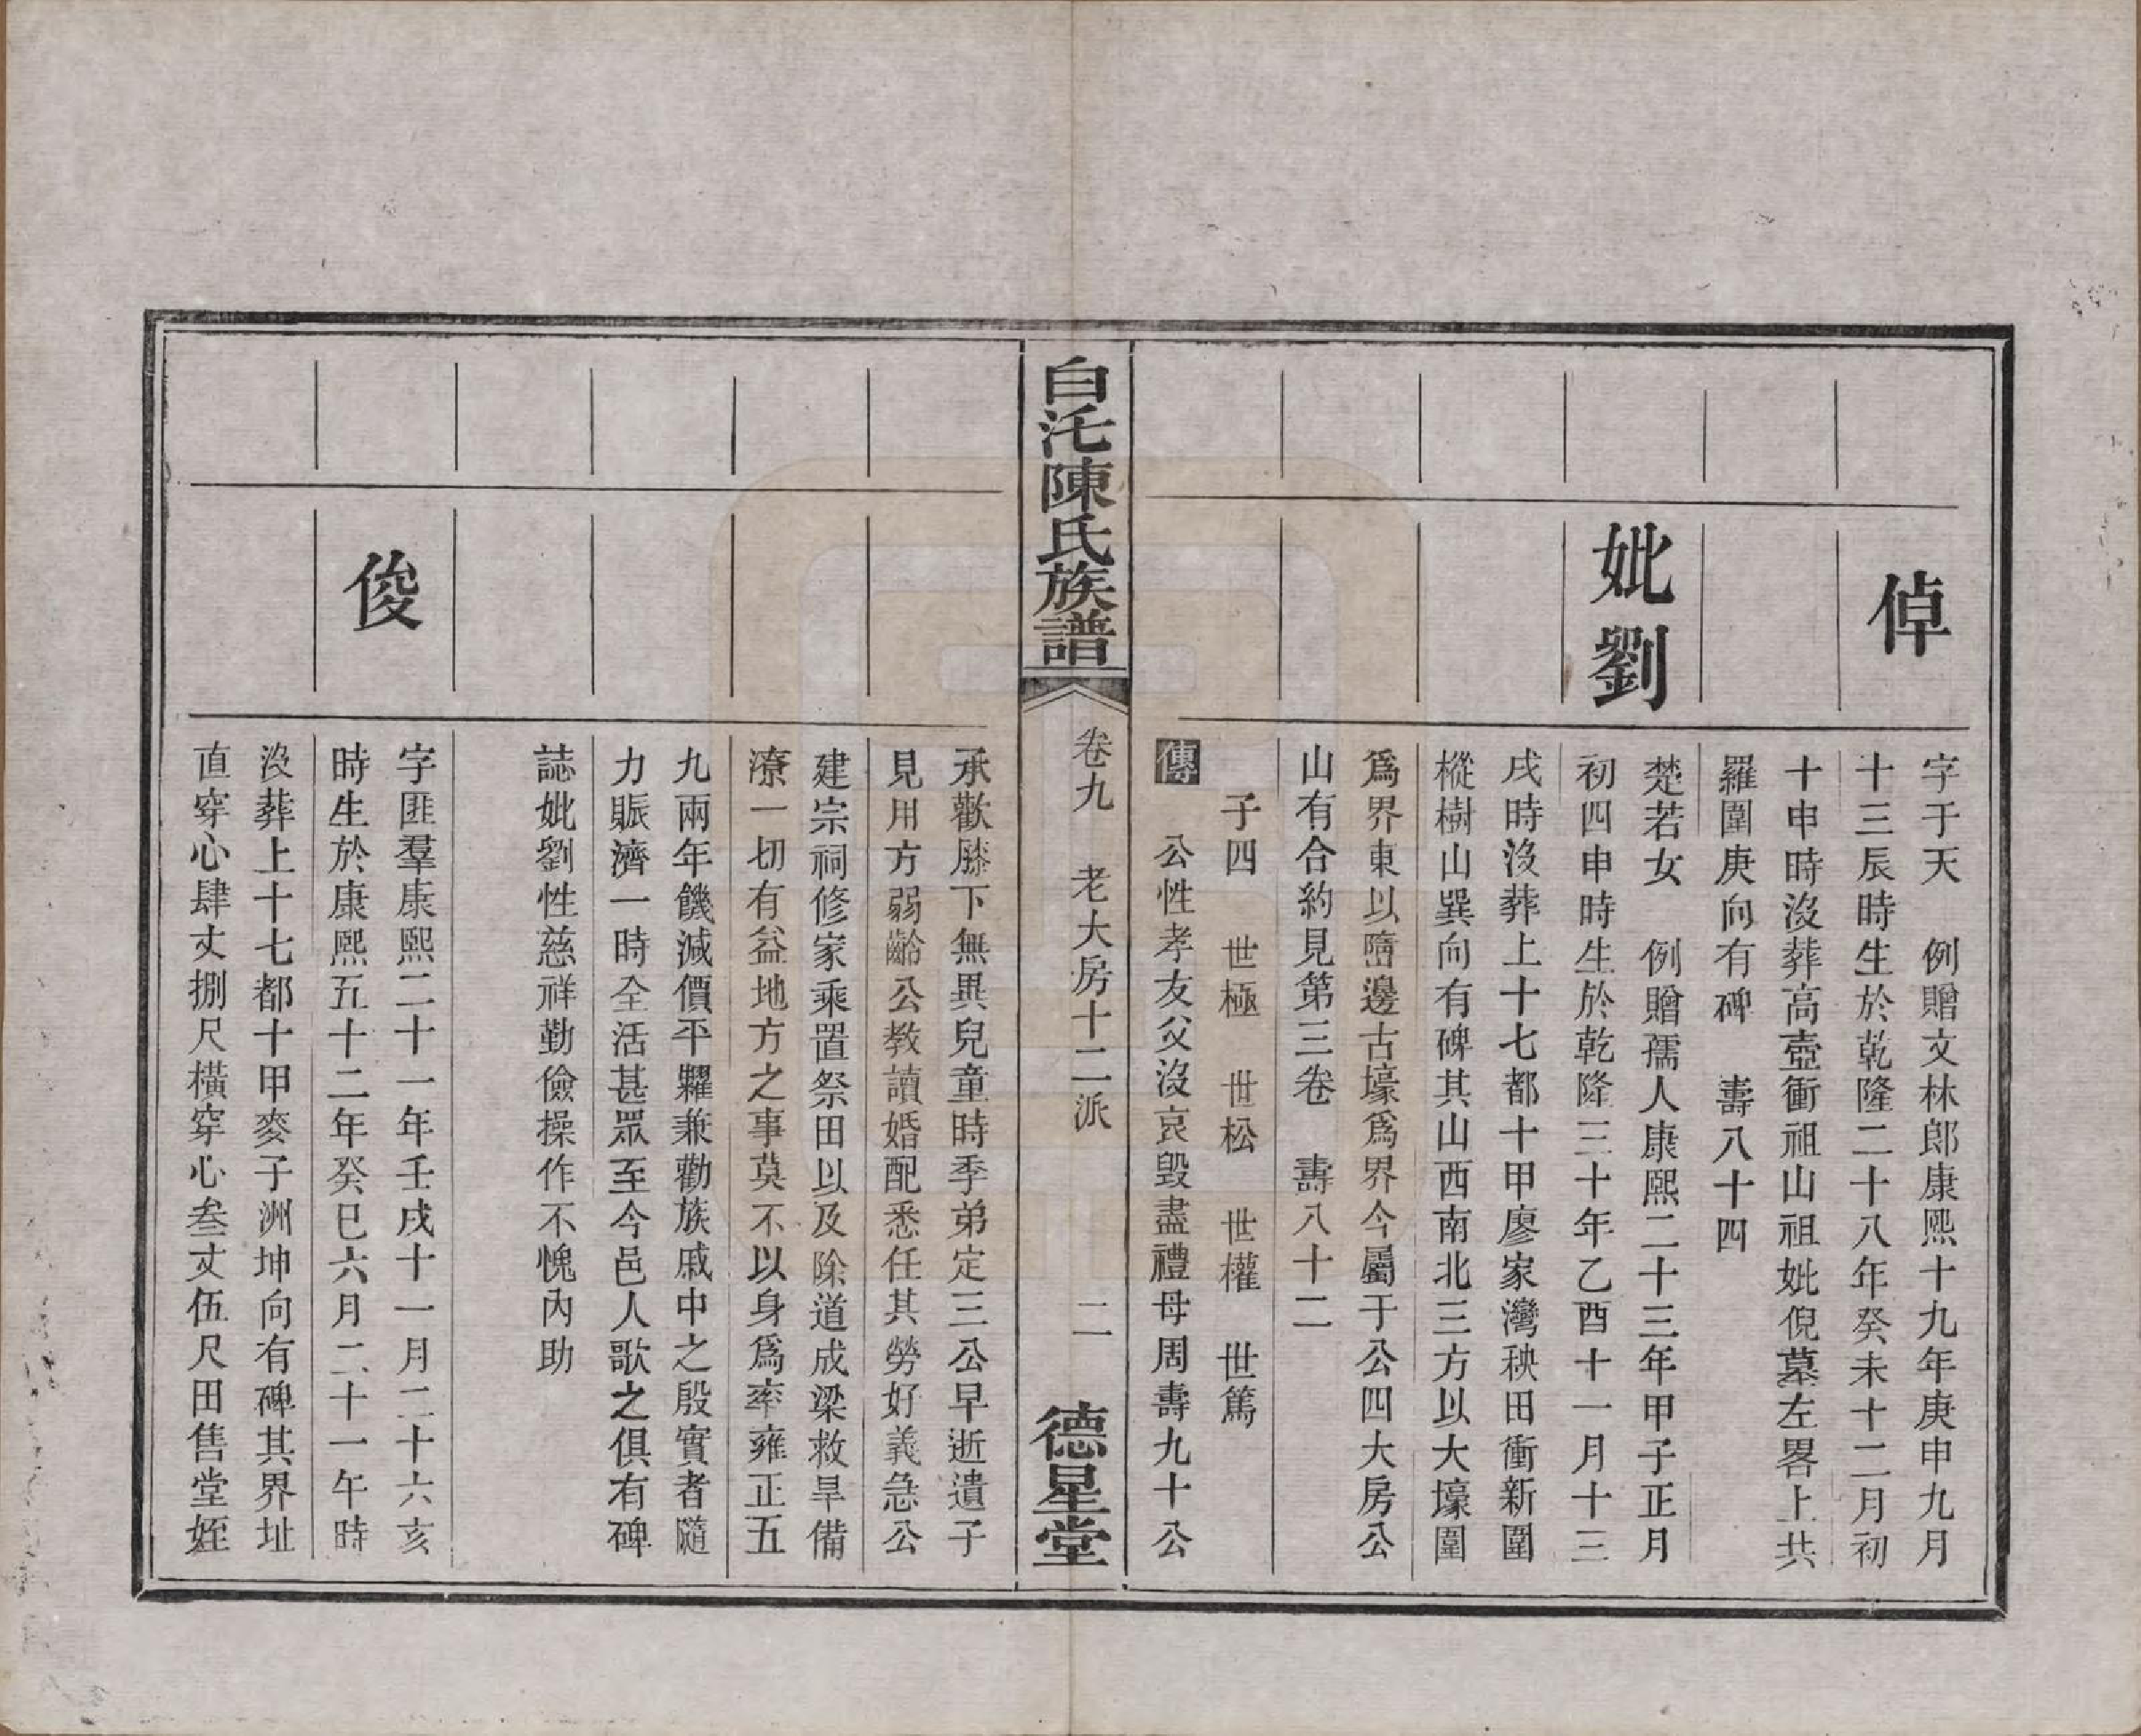 倬
字于天　例贈文林郎康熙十九年庚申九月
十三辰時生於乾隆二十八年癸未十二月初
十申時沒葬高壺衝祖山祖妣倪墓左畧上共
羅圍庚向有碑　壽八十四
妣劉
楚若女　例贈孺人康熙二十三年甲子正月
初四申時生於乾隆三十年乙酉十一月十三
戌時沒葬上十七都十甲廖家灣秧田衝新圍
樅樹山巽向有碑其山西南北三方以大壕圍
爲界東以墻邊古壕爲界今屬于公四大房公
山有合約見第三卷　壽八十二
子四　世極　世松　世權　世篤
傳　公性孝友父沒哀毀盡禮母周壽九十公
白沱陳氏族譜
卷九　老大房十二派　二
德星堂
承歡膝下無異兒童時季弟定三公早逝遺子
見用方弱齡公教讀婚配悉任其勞好義急公
建宗祠修家乘置祭田以及除道成梁救旱備
潦一切有益地方之事莫不以身爲率雍正五
九兩年饑減價平糶兼勸族戚中之殷實者隨
力賑濟一時全活甚眾至今邑人歌之俱有碑
誌妣劉性慈祥勤儉操作不愧內助
俊
字匪羣康熙二十一年壬戌十一月二十六亥
時生於康熙五十二年癸巳六月二十一午時
沒葬上十七都十甲麥子洲坤向有碑其界址
直穿心肆丈捌尺橫穿心叁丈伍尺田售堂姪